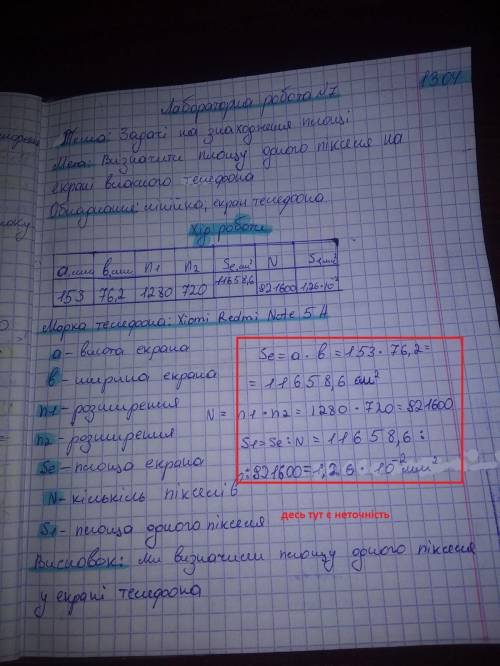 1304
Лабораторна робота №7
Тема: Задачі на знаходження площі
Мета: Визначити площу одного пікселя на
екрані власного телефона
Обладнання: лінійка, екран телефона
Хід роботи
а, мм в, мм n1 n2 Se, мм² N S1, мм²
153 76,2 1280 720 11658,6 821600 1,26·10⁻²
Марка телефона: Xiomi Redmi Note 5 A
а - висота екрана
в - ширина екрана
n1 - розширення
n2 - розширення
Se - площа екрана
N - кількість пікселів
S1 - площа одного пікселя
Se = a · в = 153 · 76,2 =
= 11658,6 см²
N = n1 · n2 = 1280 · 720 = 821600
S1 = Se : N = 11658,6 :
: 821600 = 1,26 · 10⁻² мм²
десь тут є неточність
Висновок: ми визначили площу одного пікселя
у екрані телефона